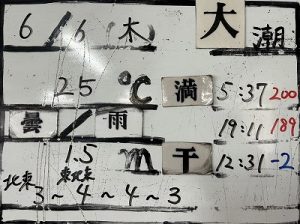 6/6(木) 大潮
25℃ 満 5:37 200
曇/雨 19:11 189
1.5m 干 12:31 -2
北東 東北東
3~4~4~3